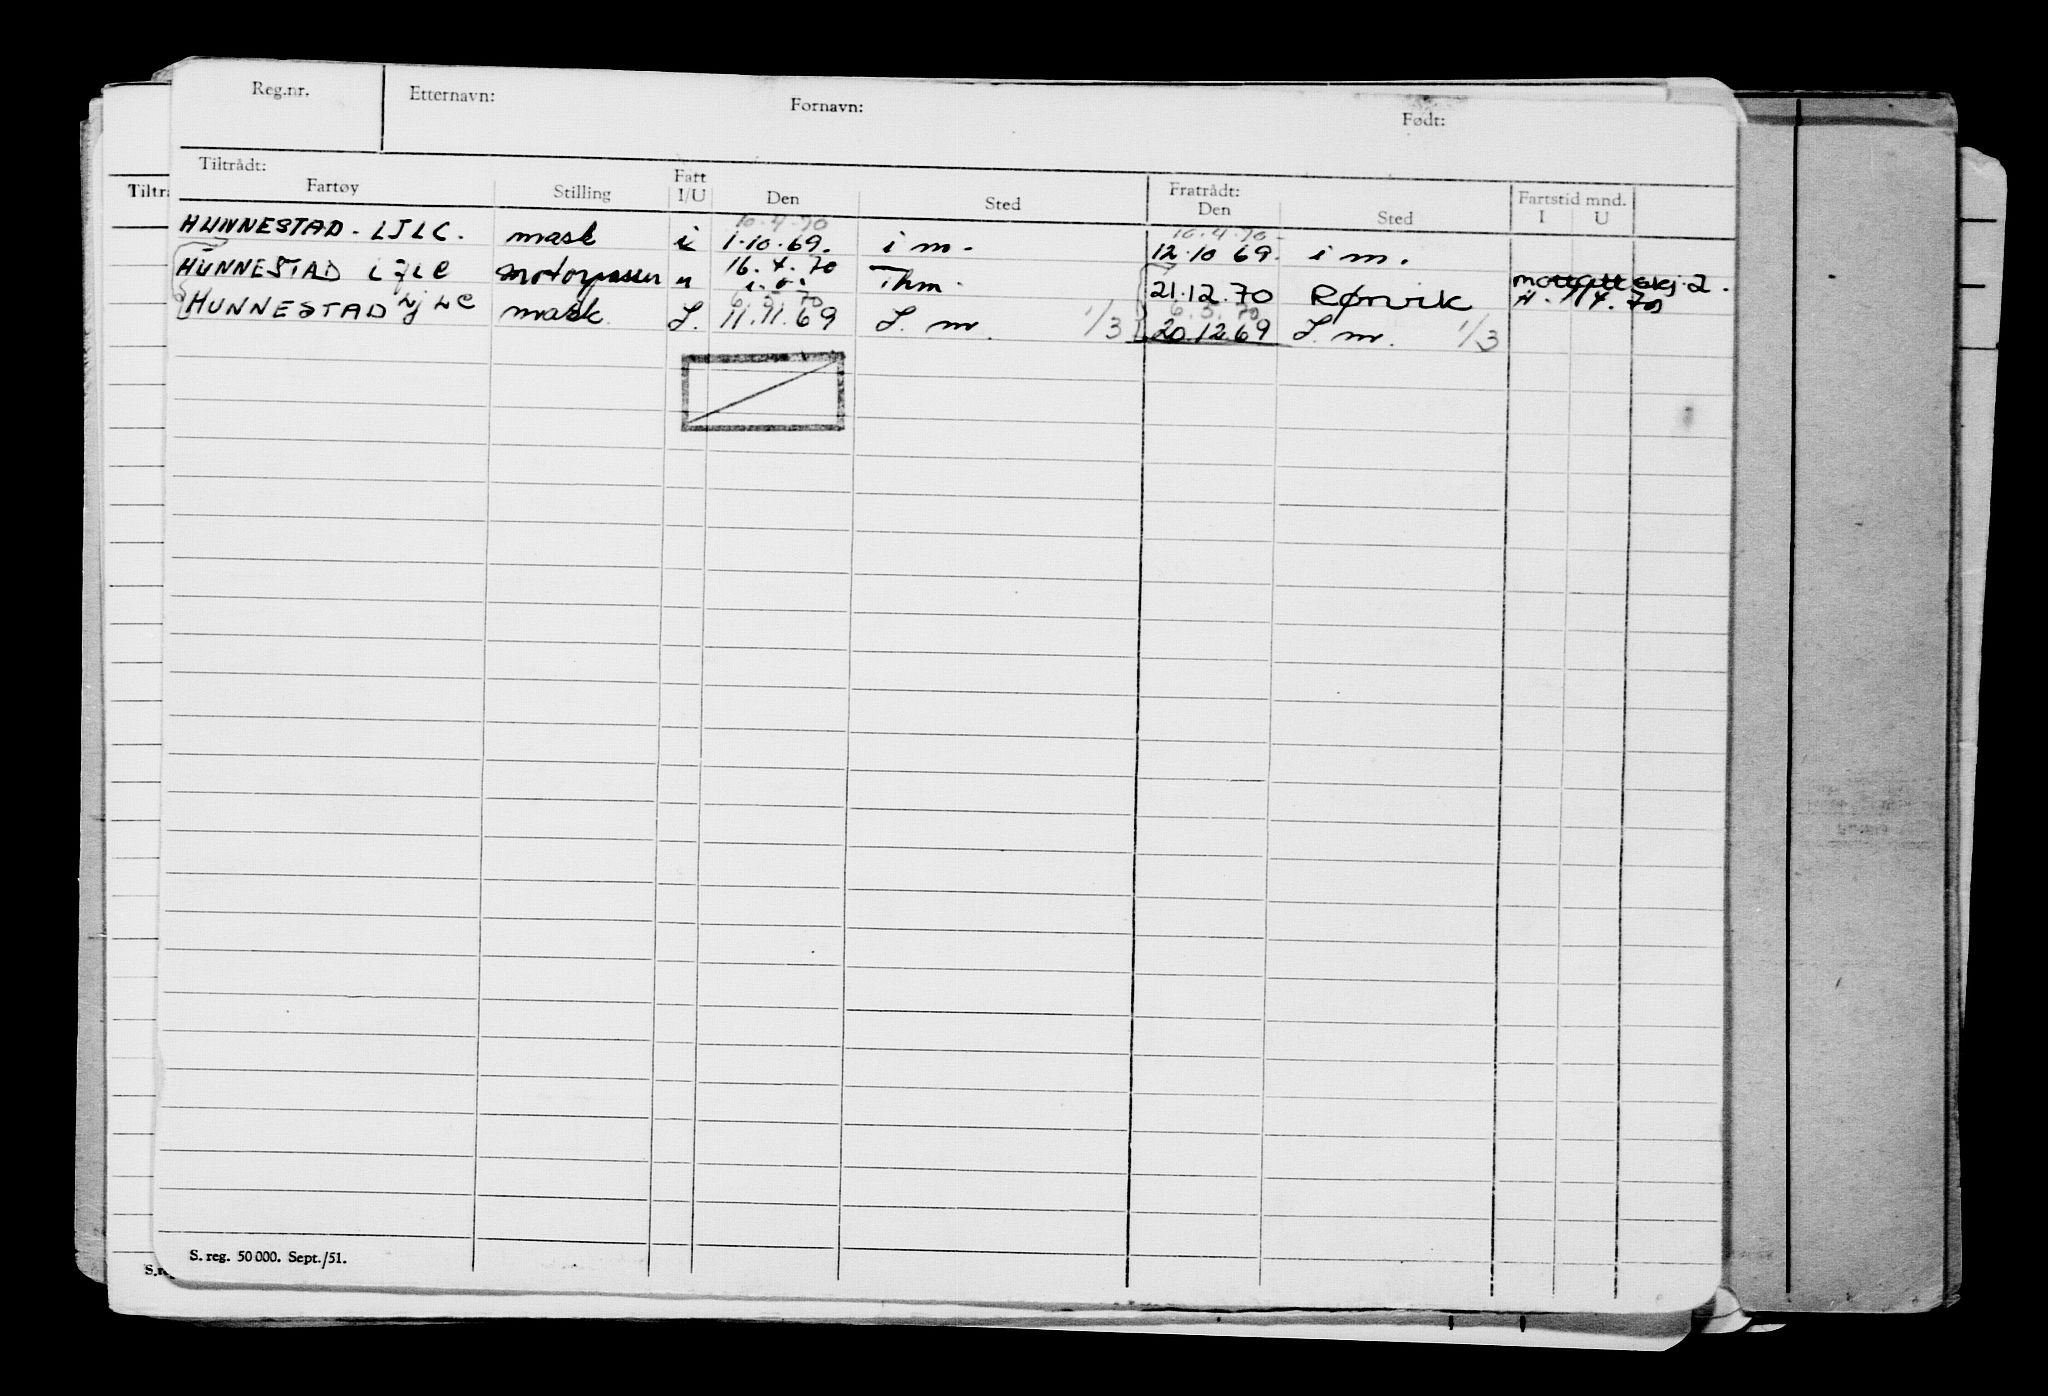 Reg.nr. Etternavn: Fornavn: Født:
Tiltrådt: Fratrådt:
Fartøy Stilling Fart I/U Den Sted Den Sted Fartstid mnd. I U
10.4.70 10.4.70
HUNNESTAD - LJLC. mask i 1.10.69. i m. 12.10 69. i m.
HUNNESTAD LJLC motorpasser u 16.4.70 ihm. 21.12.70 Rørvik mottatt skj. 2.
6.5.70 6.5.70
HUNNESTAD LJLC mask. L. 11.11.69 L. m. 1/3 20.12.69 L. m. 1/3
S. reg. 50 000. Sept./51.
Tiltrå